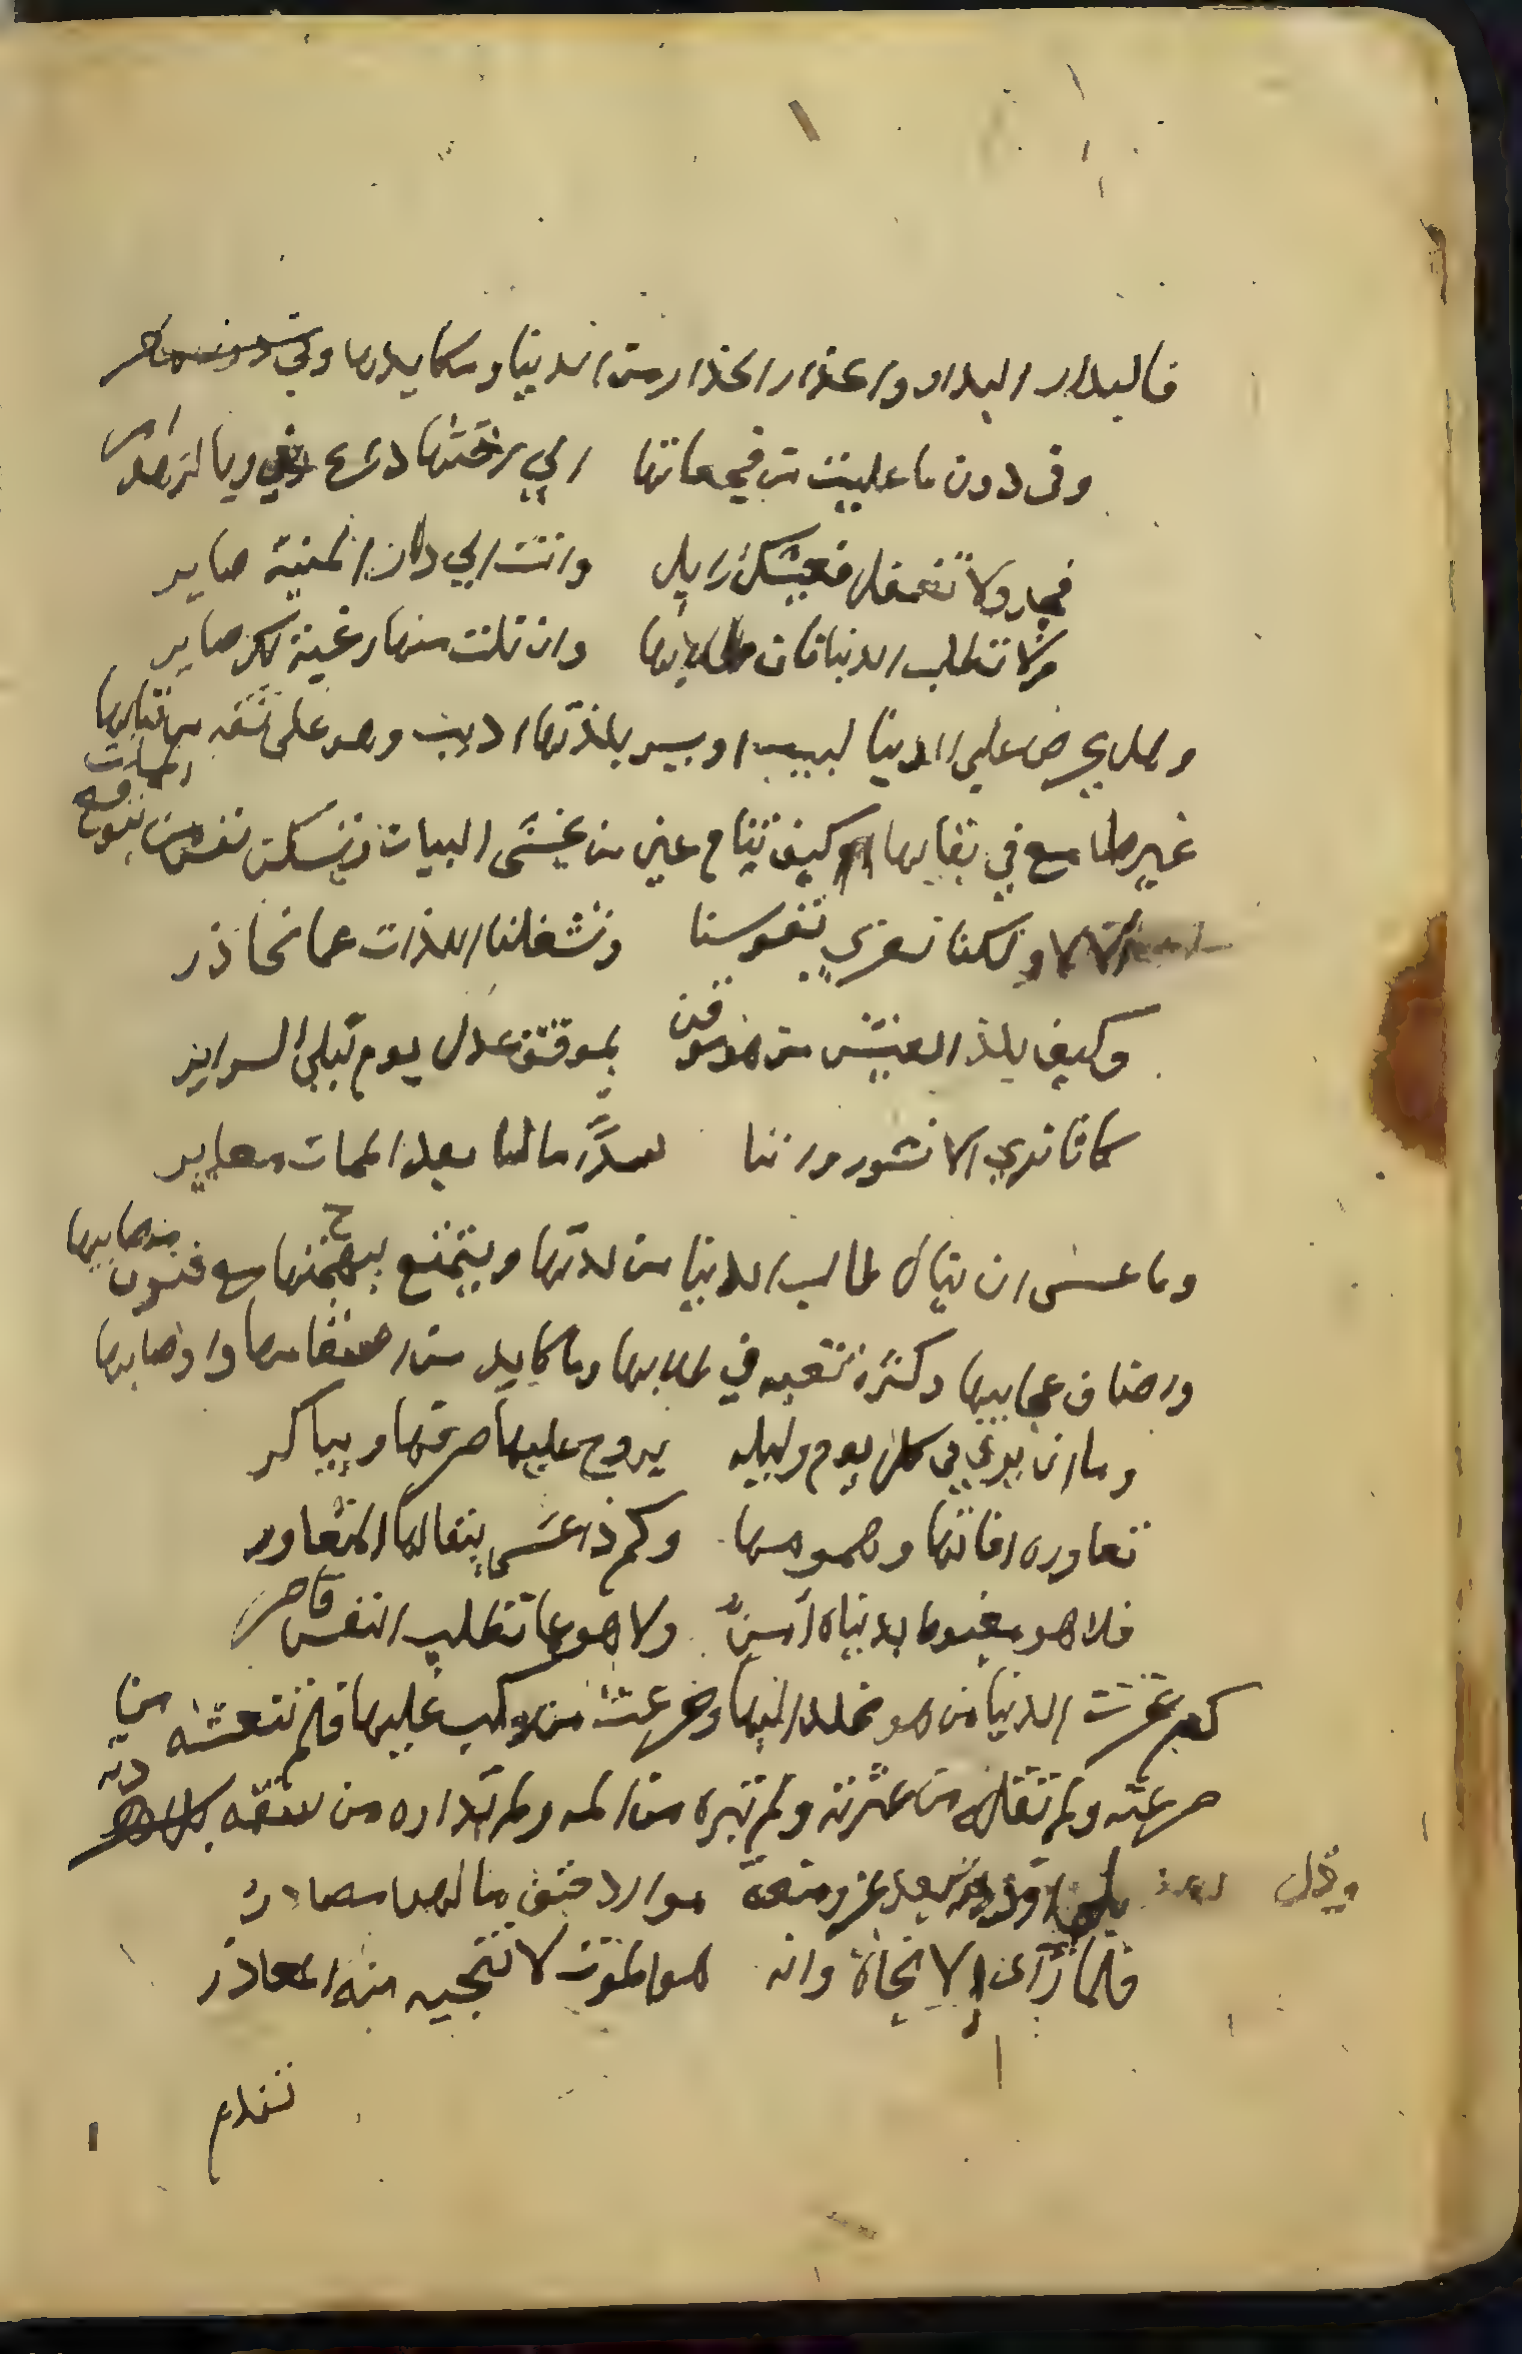 فالبدار البدار والحذار الحذار من الدنيا ومكايدها وفي
وفى دون ما عاينت من فجعاتها الي رفضها داع وبالزهد امر
فجد ولا تغفل فعيشك زايل وانت الي دار المنية صاير
ولا تطلب الدنيا فان طلابها وان نلت منها رغبة لك صاير
وهل يحرص علي الدنيا لبيب او يسر بلذتها اديب وهو على ثقه من فنايها
غير طامع في بقايها ام كيف تنام عين من يخشى البيات وتسكن نفس من يتوقع الممات
الا لا ولكنا نعزي نفوسنا وتشغلنا اللذات عما نحاذر
وكيف يلذ العيش من هو موقن بموقف عدل يوم تبلي السراير
كانا نري الا نشور واننا سدًا ما لنا بعد الممات مصاير
وما عسى ان ينال طالب الدنيا من لذتها ويتمتع ببهجتها مع فنون مصايبها
واصناف عجايبها وكثرة تعبه في طلابها وما كايد من اسقامها واوصابها
وما ان يري في كل يوم وليله يروح عليها صرفها ويباكر
تعاوره افاتها وهمومها وكم ذا عسى يبقا لها المتعاور
فلا هو مغبوط بدنياه آمنٌ ولا هو عما تطلب النفس قاصر
كم غرت الدنيا من هو مخلد اليها وصرعت من مكب عليها فلم تنعشه من
صرعته ولم تقله من عثرته ولم تبره من المه ولم تداوه من سقمه
بلي اوردته بعد عز ومنعة موارد حتف ما لهن مصادر
فلما رآى إلا نجاة وانه هو الموت لا تنجيه منه المعاذر
تندم